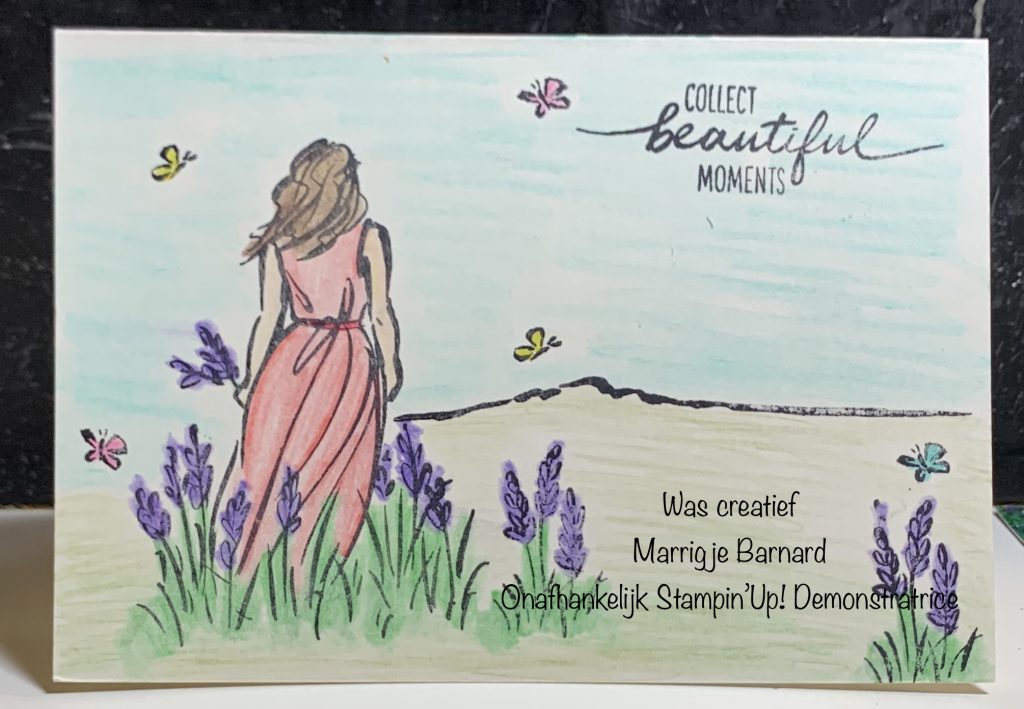 COLLECT
beautiful
MOMENTS
Was creatief
Marrigje Barnard
Onafhankelijk Stampin'Up! Demonstratrice